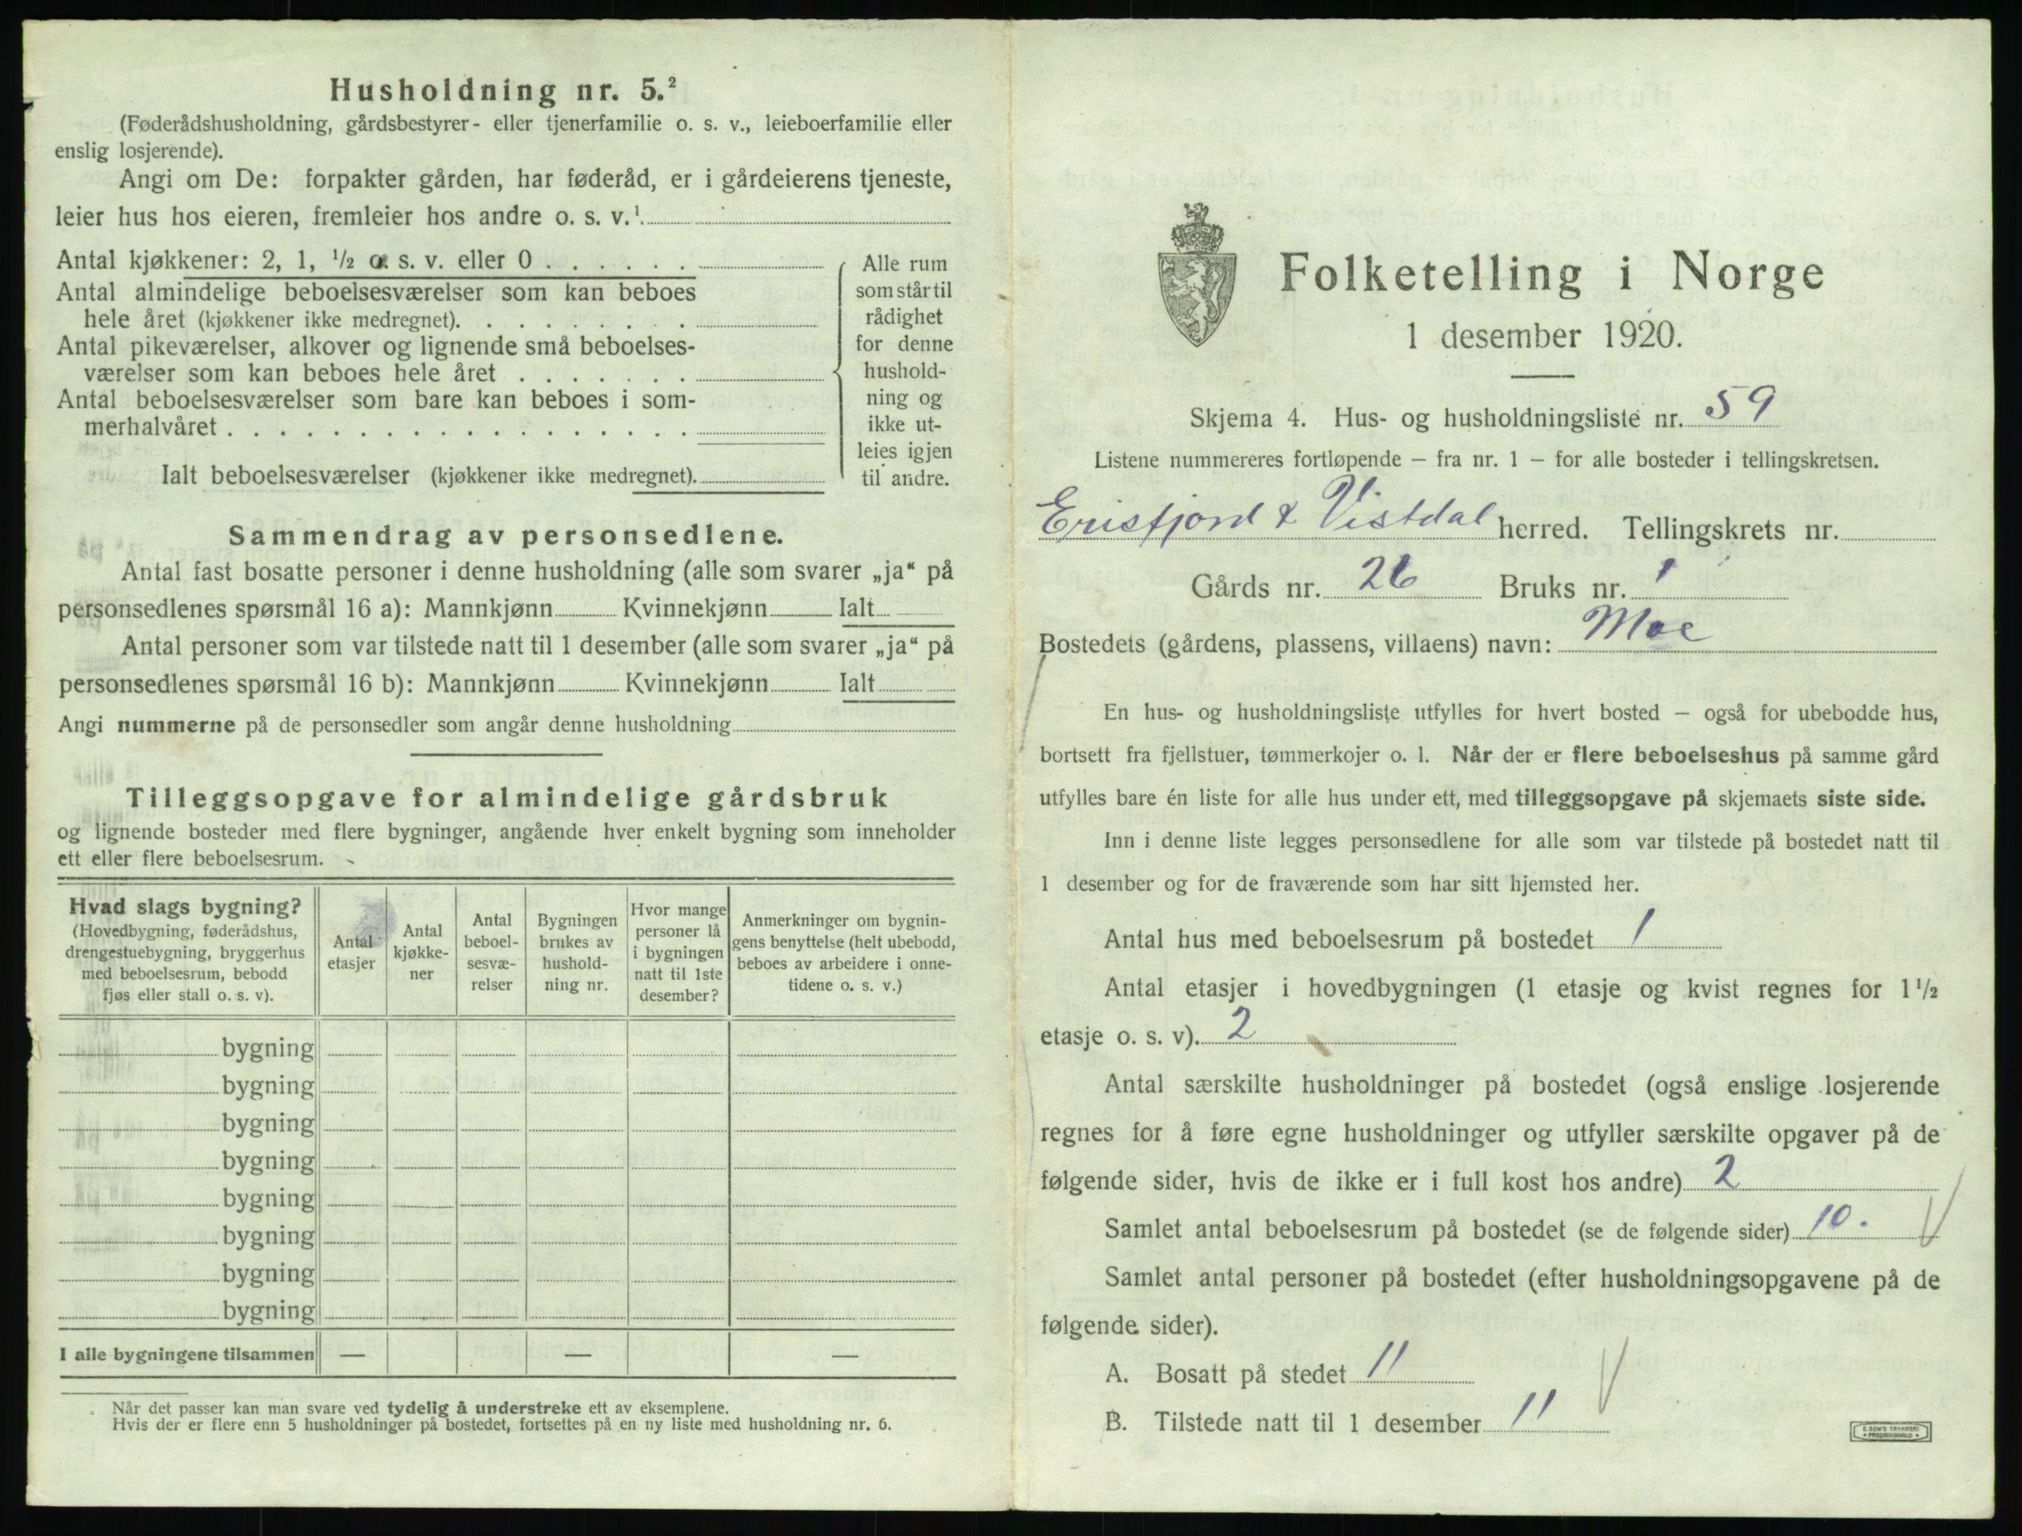 Husholdning nr. 5.²
(Føderådshusholdning, gårdsbestyrer- eller tjenerfamilie o. s. v., leieboerfamilie eller
enslig losjerende).
Angi om De: forpakter gården, har føderåd, er i gårdeierens tjeneste,
leier hus hos eieren, fremleier hos andre o. s. v.¹
Antal kjøkkener: 2, 1, ½ o. s. v. eller 0
Antal almindelige beboelsesværelser som kan beboes
hele året (kjøkkener ikke medregnet).
Antal pikeværelser, alkover og lignende små beboelses-
værelser som kan beboes hele året
Antal beboelsesværelser som bare kan beboes i som-
merhalvåret
Ialt beboelsesværelser (kjøkkener ikke medregnet).
Alle rum
som står til
rådighet
for denne
hushold-
ning og
ikke ut-
leies igjen
til andre.
Sammendrag av personsedlene.
Antal fast bosatte personer i denne husholdning (alle som svarer „ja“ på
personsedlenes spørsmål 16 a): Mannkjønn Kvinnekjønn Ialt
Antal personer som var tilstede natt til 1 desember (alle som svarer „ja“ på
personsedlenes spørsmål 16 b): Mannkjønn Kvinnekjønn Ialt
Angi nummerne på de personsedler som angår denne husholdning
Tilleggsopgave for almindelige gårdsbruk
og lignende bosteder med flere bygninger, angående hver enkelt bygning som inneholder
ett eller flere beboelsesrum.
Hvad slags bygning?
(Hovedbygning, føderådshus,
drengestuebygning, bryggerhus
med beboelsesrum, bebodd
fjøs eller stall o. s. v).
Antal
etasjer
Antal
kjøkke-
ner
Antal
beboel-
sesvæ-
relser
Bygningen
brukes av
hushold-
ning nr.
Hvor mange
personer lå
i bygningen
natt til 1ste
desember?
Anmerkninger om bygnin-
gens benyttelse (helt ubebodd,
beboes av arbeidere i onne-
tidene o. s. v.)
bygning
bygning
bygning
bygning
bygning
bygning
bygning
bygning
I alle bygningene tilsammen — — —
Når det passer kan man svare ved tydelig å understreke ett av eksemplene.
Hvis der er flere enn 5 husholdninger på bostedet, fortsettes på en ny liste med husholdning nr. 6.
Folketelling i Norge
1 desember 1920.
Skjema 4. Hus- og husholdningsliste nr. 59
Listene nummereres fortløpende – fra nr. 1 – for alle bosteder i tellingskretsen.
Erisfjord & Vistdal herred. Tellingskrets nr.
Gårds nr. 26 Bruks nr. 1
Bostedets (gårdens, plassens, villaens) navn: Moe
En hus- og husholdningsliste utfylles for hvert bosted – også for ubebodde hus,
bortsett fra fjellstuer, tømmerkojer o. l. Når der er flere beboelseshus på samme gård
utfylles bare én liste for alle hus under ett, med tilleggsopgave på skjemaets siste side.
Inn i denne liste legges personsedlene for alle som var tilstede på bostedet natt til
1 desember og for de fraværende som har sitt hjemsted her.
Antal hus med beboelsesrum på bostedet 1
Antal etasjer i hovedbygningen (1 etasje og kvist regnes for 1½
etasje o. s. v). 2
Antal særskilte husholdninger på bostedet (også enslige losjerende
regnes for å føre egne husholdninger og utfyller særskilte opgaver på de
følgende sider, hvis de ikke er i full kost hos andre) 2
Samlet antal beboelsesrum på bostedet (se de følgende sider) 10.
Samlet antal personer på bostedet (efter husholdningsopgavene på de
følgende sider).
A. Bosatt på stedet 11
B. Tilstede natt til 1 desember 11